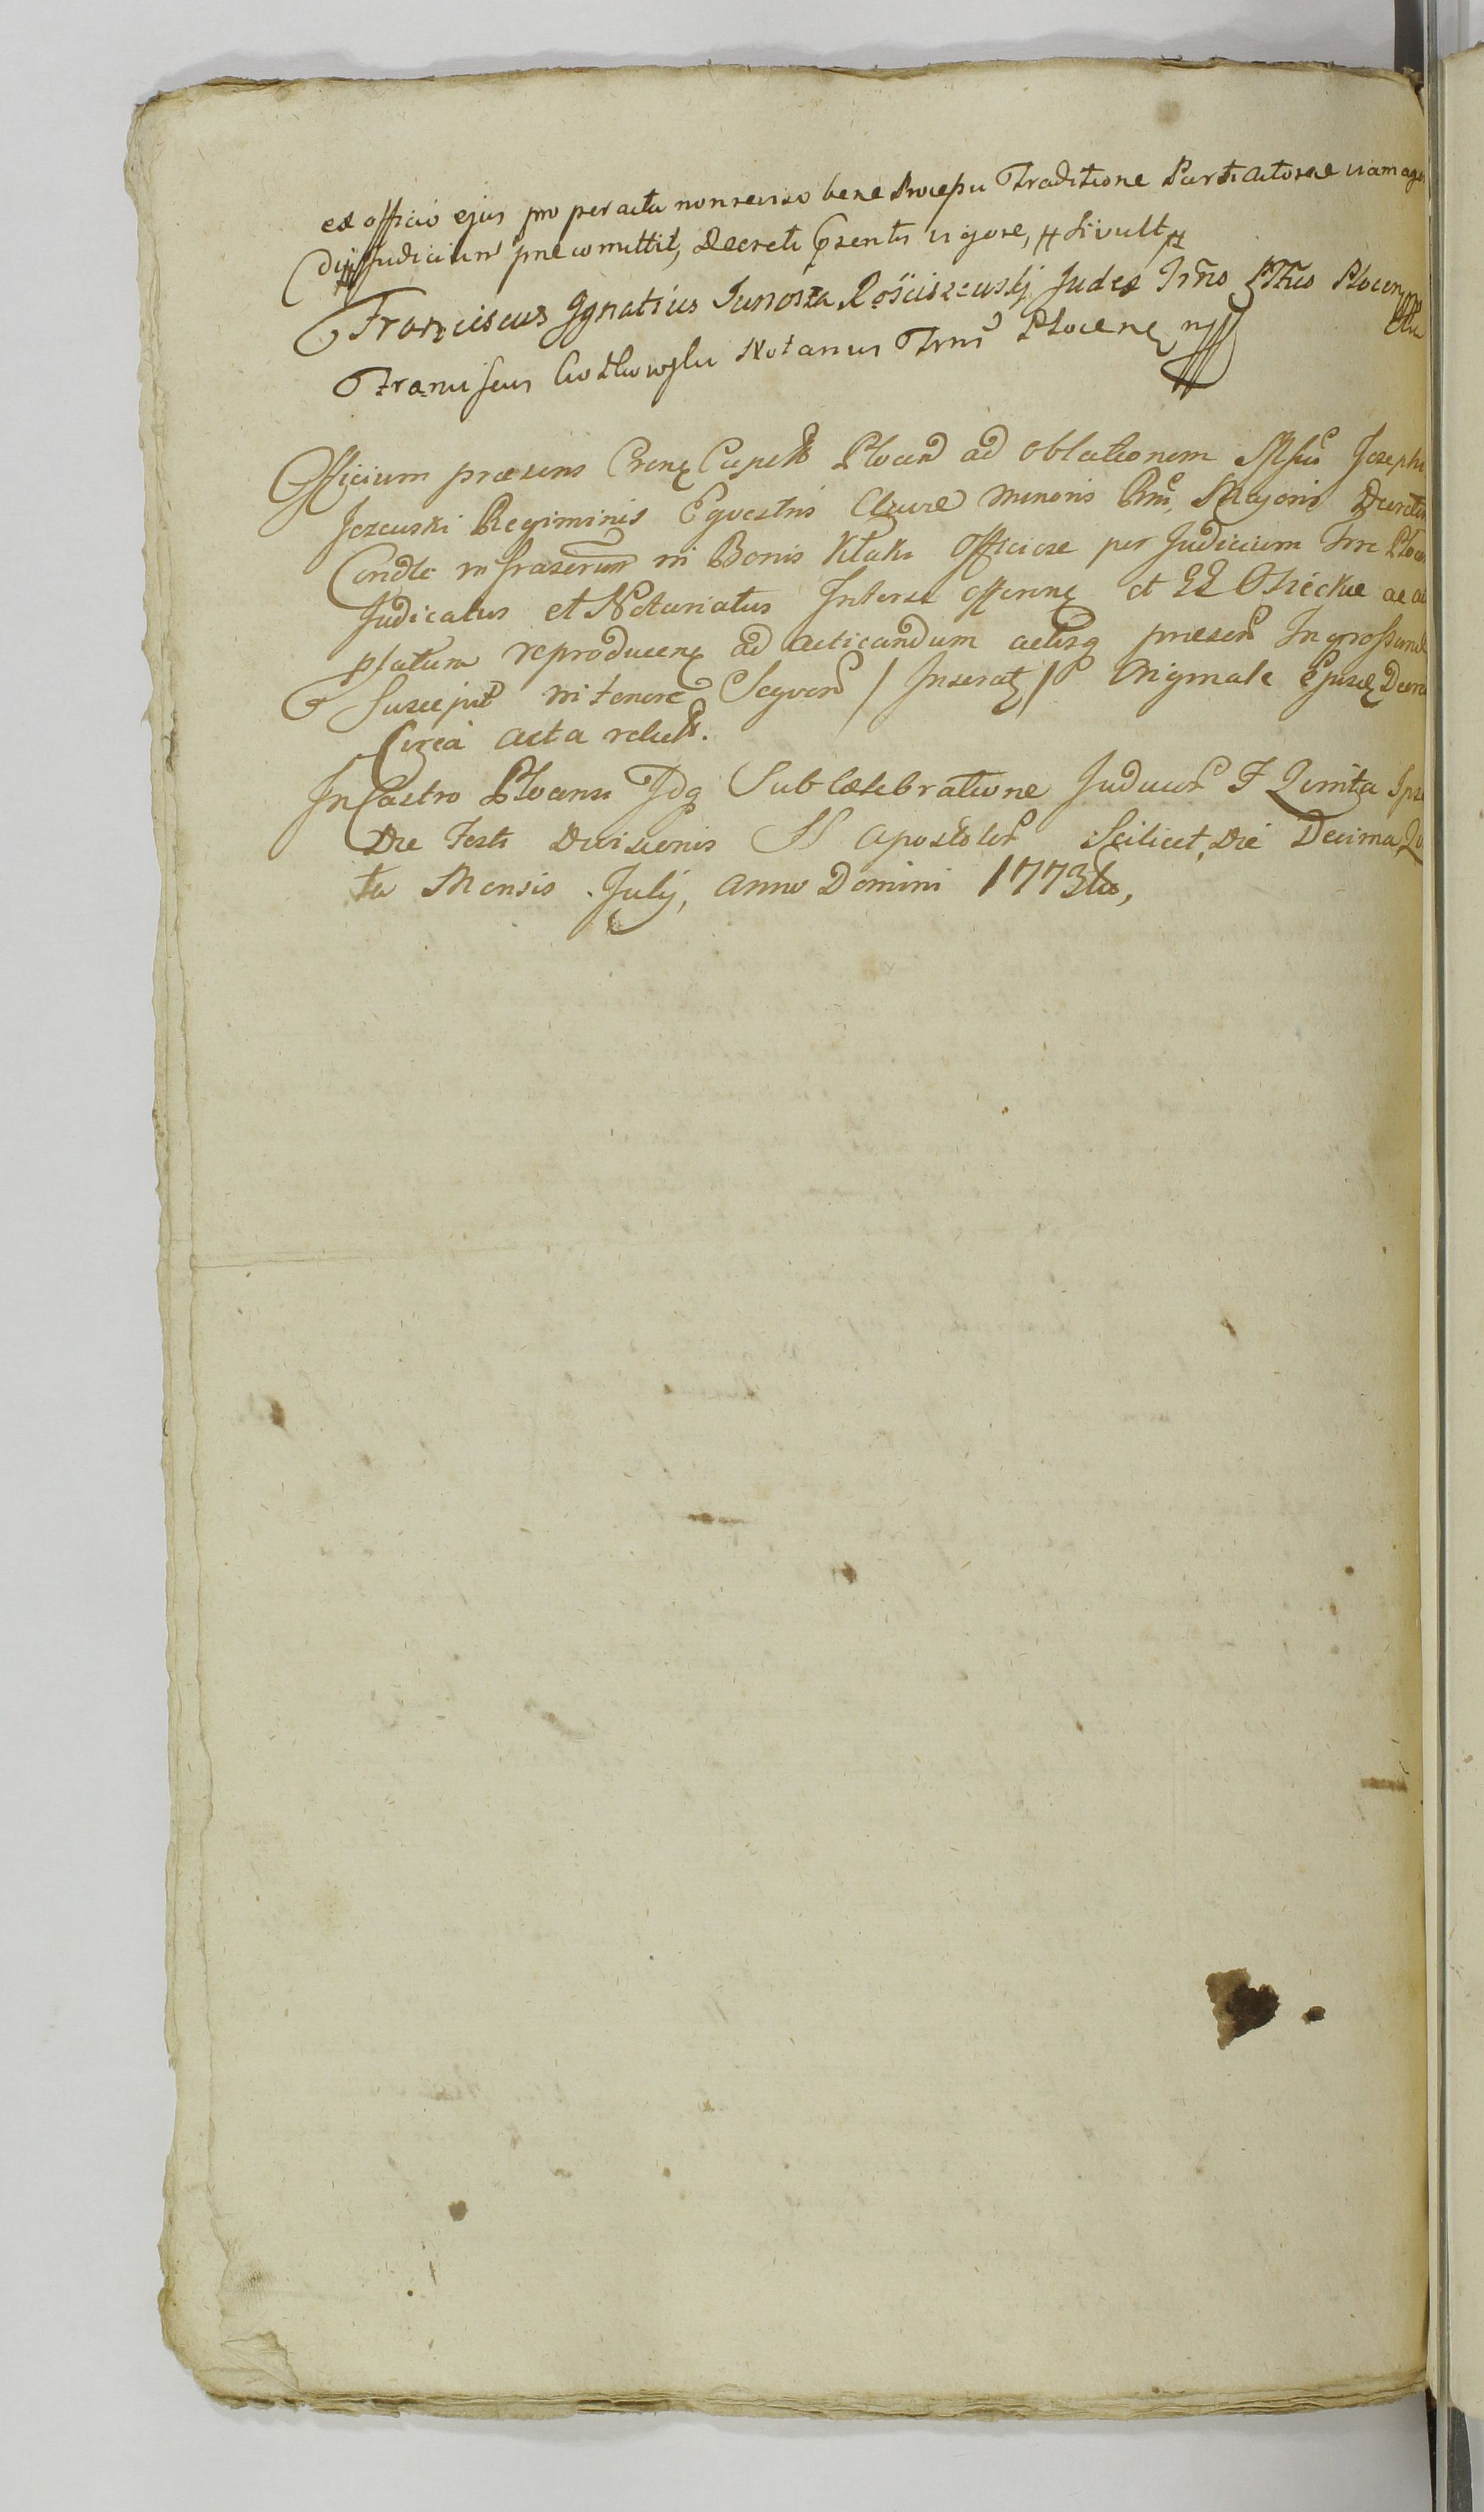 ex officio ejus pro peracta non reviso bene Procepu Traditione Parti Actoreae viam age
dij Judicium pne comittit, Decreti psentis vigore, # si vult #
Franciscus Ignatius Junosza Rościszewskj Judex Trrıs Plocen
Franciscus Notarius Trris Plocenẹ mp
Officium præsens Crenẹ Capetle Plocen ad oblationem Josephi
Jezewski Regiminis Equestris Clavæ minoris Majoris Decretu
Condle in fraserum in Bonis Kitaki Officiose per Judicium Trre Ploce
Judicatus et Notariatus Inter se offerenẹ et Osieckie ac ac
ptatum reproducenẹ ad acticandum actisq præsen Ingrossand
Suscepit in tenore Sequen / Inseratꝫ / Originale Ejusdẹ Decre
Circa acta relict.
In Castro Plocensi Idq Sub Celebratione Judicior F Qvinta Ips
Die Festi Divisionis SS Apostolor Scilicet, Die Decima Qvin
ta Mensis July, Anno Domini 1773tio,